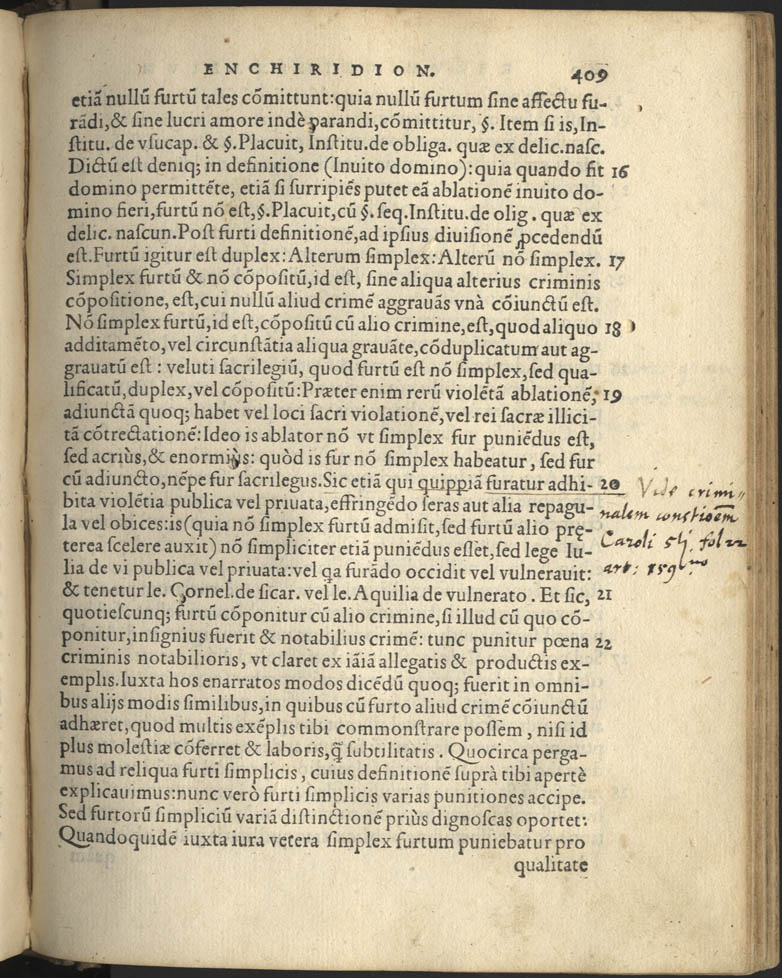 ENCHIRIDION. 409
etiã nullũ furtũ tales cõmittunt: quia nullũ furtum ſine affectu fu-
rãdi, & ſine lucri amore indè ꝑarandi, cõmittitur, §. Item ſi is, In-
ſtitu. de vſucap. & §. Placuit, Inſtitu. de obliga. quæ ex delic. naſc.
Dictũ eſt deniq; in definitione (Inuito domino): quia quando fit 16
domino permittẽte, etiã ſi ſurripiẽs putet eã ablationẽ inuito do-
mino fieri, furtũ nõ eſt, §. Placuit, cũ §. ſeq. Inſtitu. de olig. quæ ex
delic. naſcun. Poſt furti definitionẽ, ad ipſius diuiſionẽ ꝓcedendũ
eſt. Furtũ igitur eſt duplex: Alterum ſimplex: Alterũ nõ ſimplex. 17
Simplex furtũ & nõ cõpoſitũ, id eſt, ſine aliqua alterius criminis
cõpoſitione, eſt, cui nullũ aliud crimẽ aggrauãs vnà cõiunctũ eſt.
Nõ ſimplex furtũ, id eſt, cõpoſitũ cũ alio crimine, eſt, quod aliquo 18
additamẽto, vel circunſtãtia aliqua grauãte, cõduplicatum aut ag-
grauatũ eſt: veluti ſacrilegiũ, quod furtũ eſt nõ ſimplex, ſed qua-
lificatũ, duplex, vel cõpoſitũ: Præter enim rerũ violẽtã ablationẽ, 19
adiunctã quoq; habet vel loci ſacri violationẽ, vel rei ſacræ illici-
tã cõtrectationẽ: Ideo is ablator nõ vt ſimplex fur puniẽdus eſt,
ſed acriùs, & enormiùs: quòd is fur nõ ſimplex habeatur, ſed fur
cũ adiuncto, nẽpe fur ſacrilegus. Sic etiã qui quippiã furatur adhi- 20
bita violẽtia publica vel priuata, effringẽdo ſeras aut alia repagu-
la vel obices: is (quia nõ ſimplex furtũ admiſit, ſed furtũ alio prę-
terea ſcelere auxit) nõ ſimpliciter etiã puniẽdus eſſet, ſed lege Iu-
lia de vi publica vel priuata: vel q̃a furãdo occidit vel vulnerauit:
& tenetur le. Cornel. de ſicar. vel le. Aquilia de vulnerato. Et ſic, 21
quotieſcunq; furtũ cõponitur cũ alio crimine, ſi illud cũ quo cõ-
ponitur, inſignius fuerit & notabilius crimẽ: tunc punitur pœna 22
criminis notabilioris, vt claret ex iãiã allegatis & productis ex-
emplis. Iuxta hos enarratos modos dicẽdũ quoq; fuerit in omni-
bus alijs modis ſimilibus, in quibus cũ furto aliud crimẽ cõiunctũ
adhæret, quod multis exẽplis tibi commonſtrare poſſem, niſi id
plus moleſtiæ cõferret & laboris, q̃ ſubtilitatis. Quocirca perga-
mus ad reliqua furti ſimplicis, cuius definitionẽ ſuprà tibi apertè
explicauimus: nunc verò furti ſimplicis varias punitiones accipe.
Sed furtorũ ſimpliciũ variã diſtinctionẽ priùs dignoſcas oportet:
Quandoquidẽ iuxta iura vetera ſimplex furtum puniebatur pro
qualitate
Vide crimi=
nalem
Caroli fol 22
art: 159